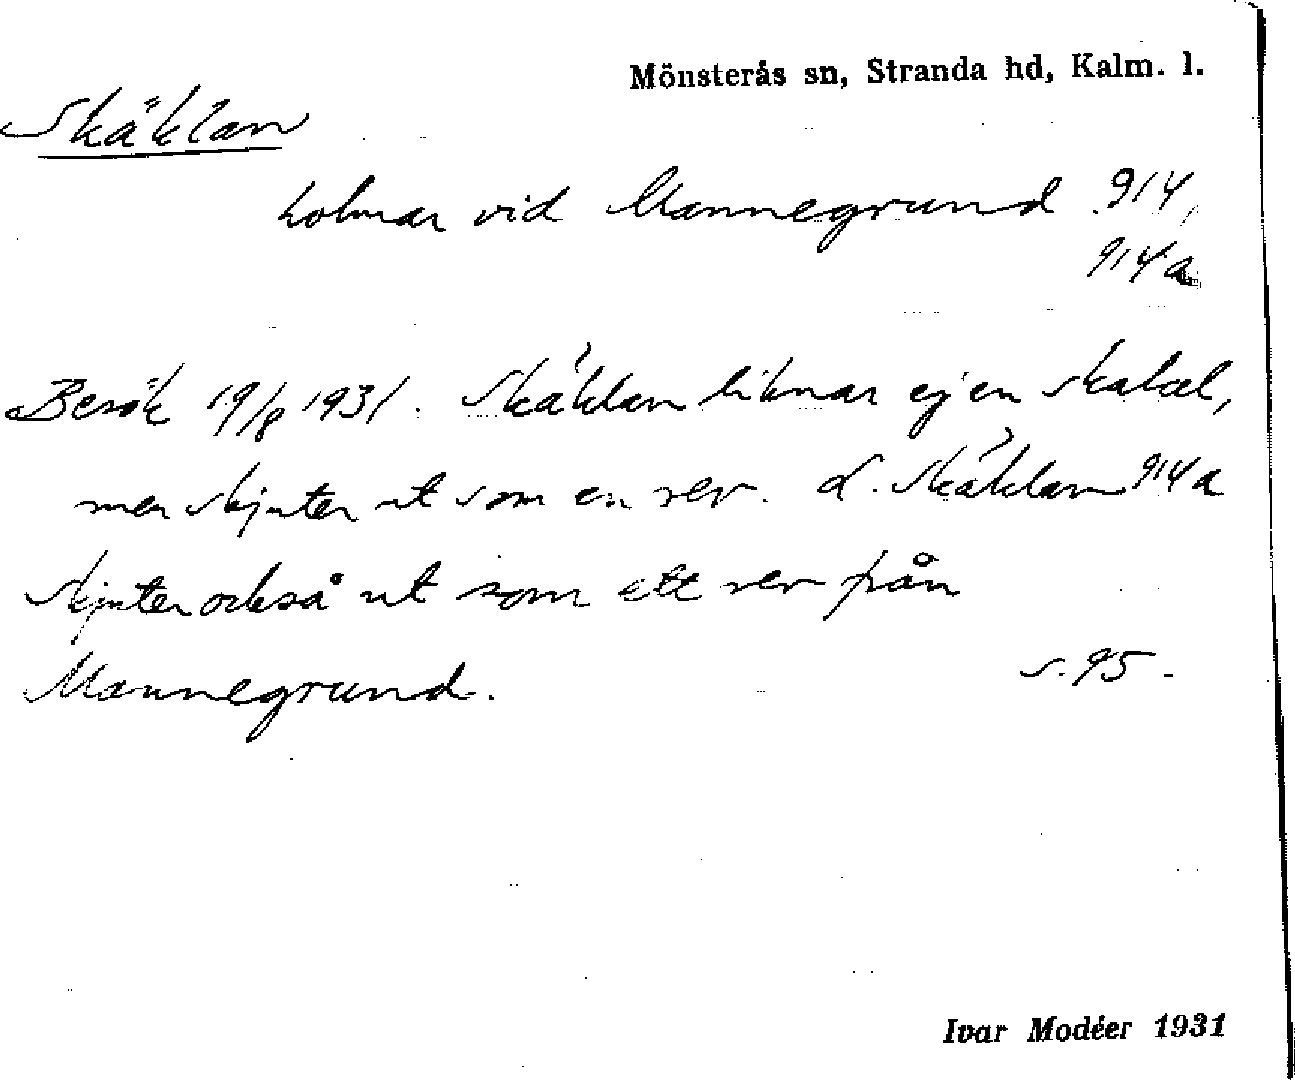 Mönsterås sn, Stranda hd, Kalm. l.
Skäklan
holmar vid Mannegrund 914,
914a
Besök 19/8 1931. Skäklan liknar ej en skakel,
men skjuter ut som en rev. L. Skäklan 914a
skjuter också ut som ett rev från
Mannegrund.
s. 95.
Ivar Modéer 1931